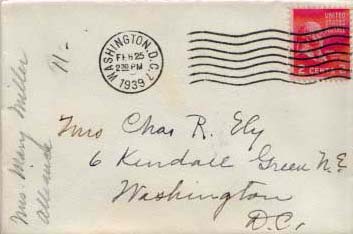 WASHINGTON, D.C. 7
FEB 25
2 30 PM
1939
UNITED STATES
POSTAGE
2 CENTS 2
11-
Mrs. Mary Miller
Mrs Chas R. Ely
6 Kendall Green N.E.
Washington
D.C.